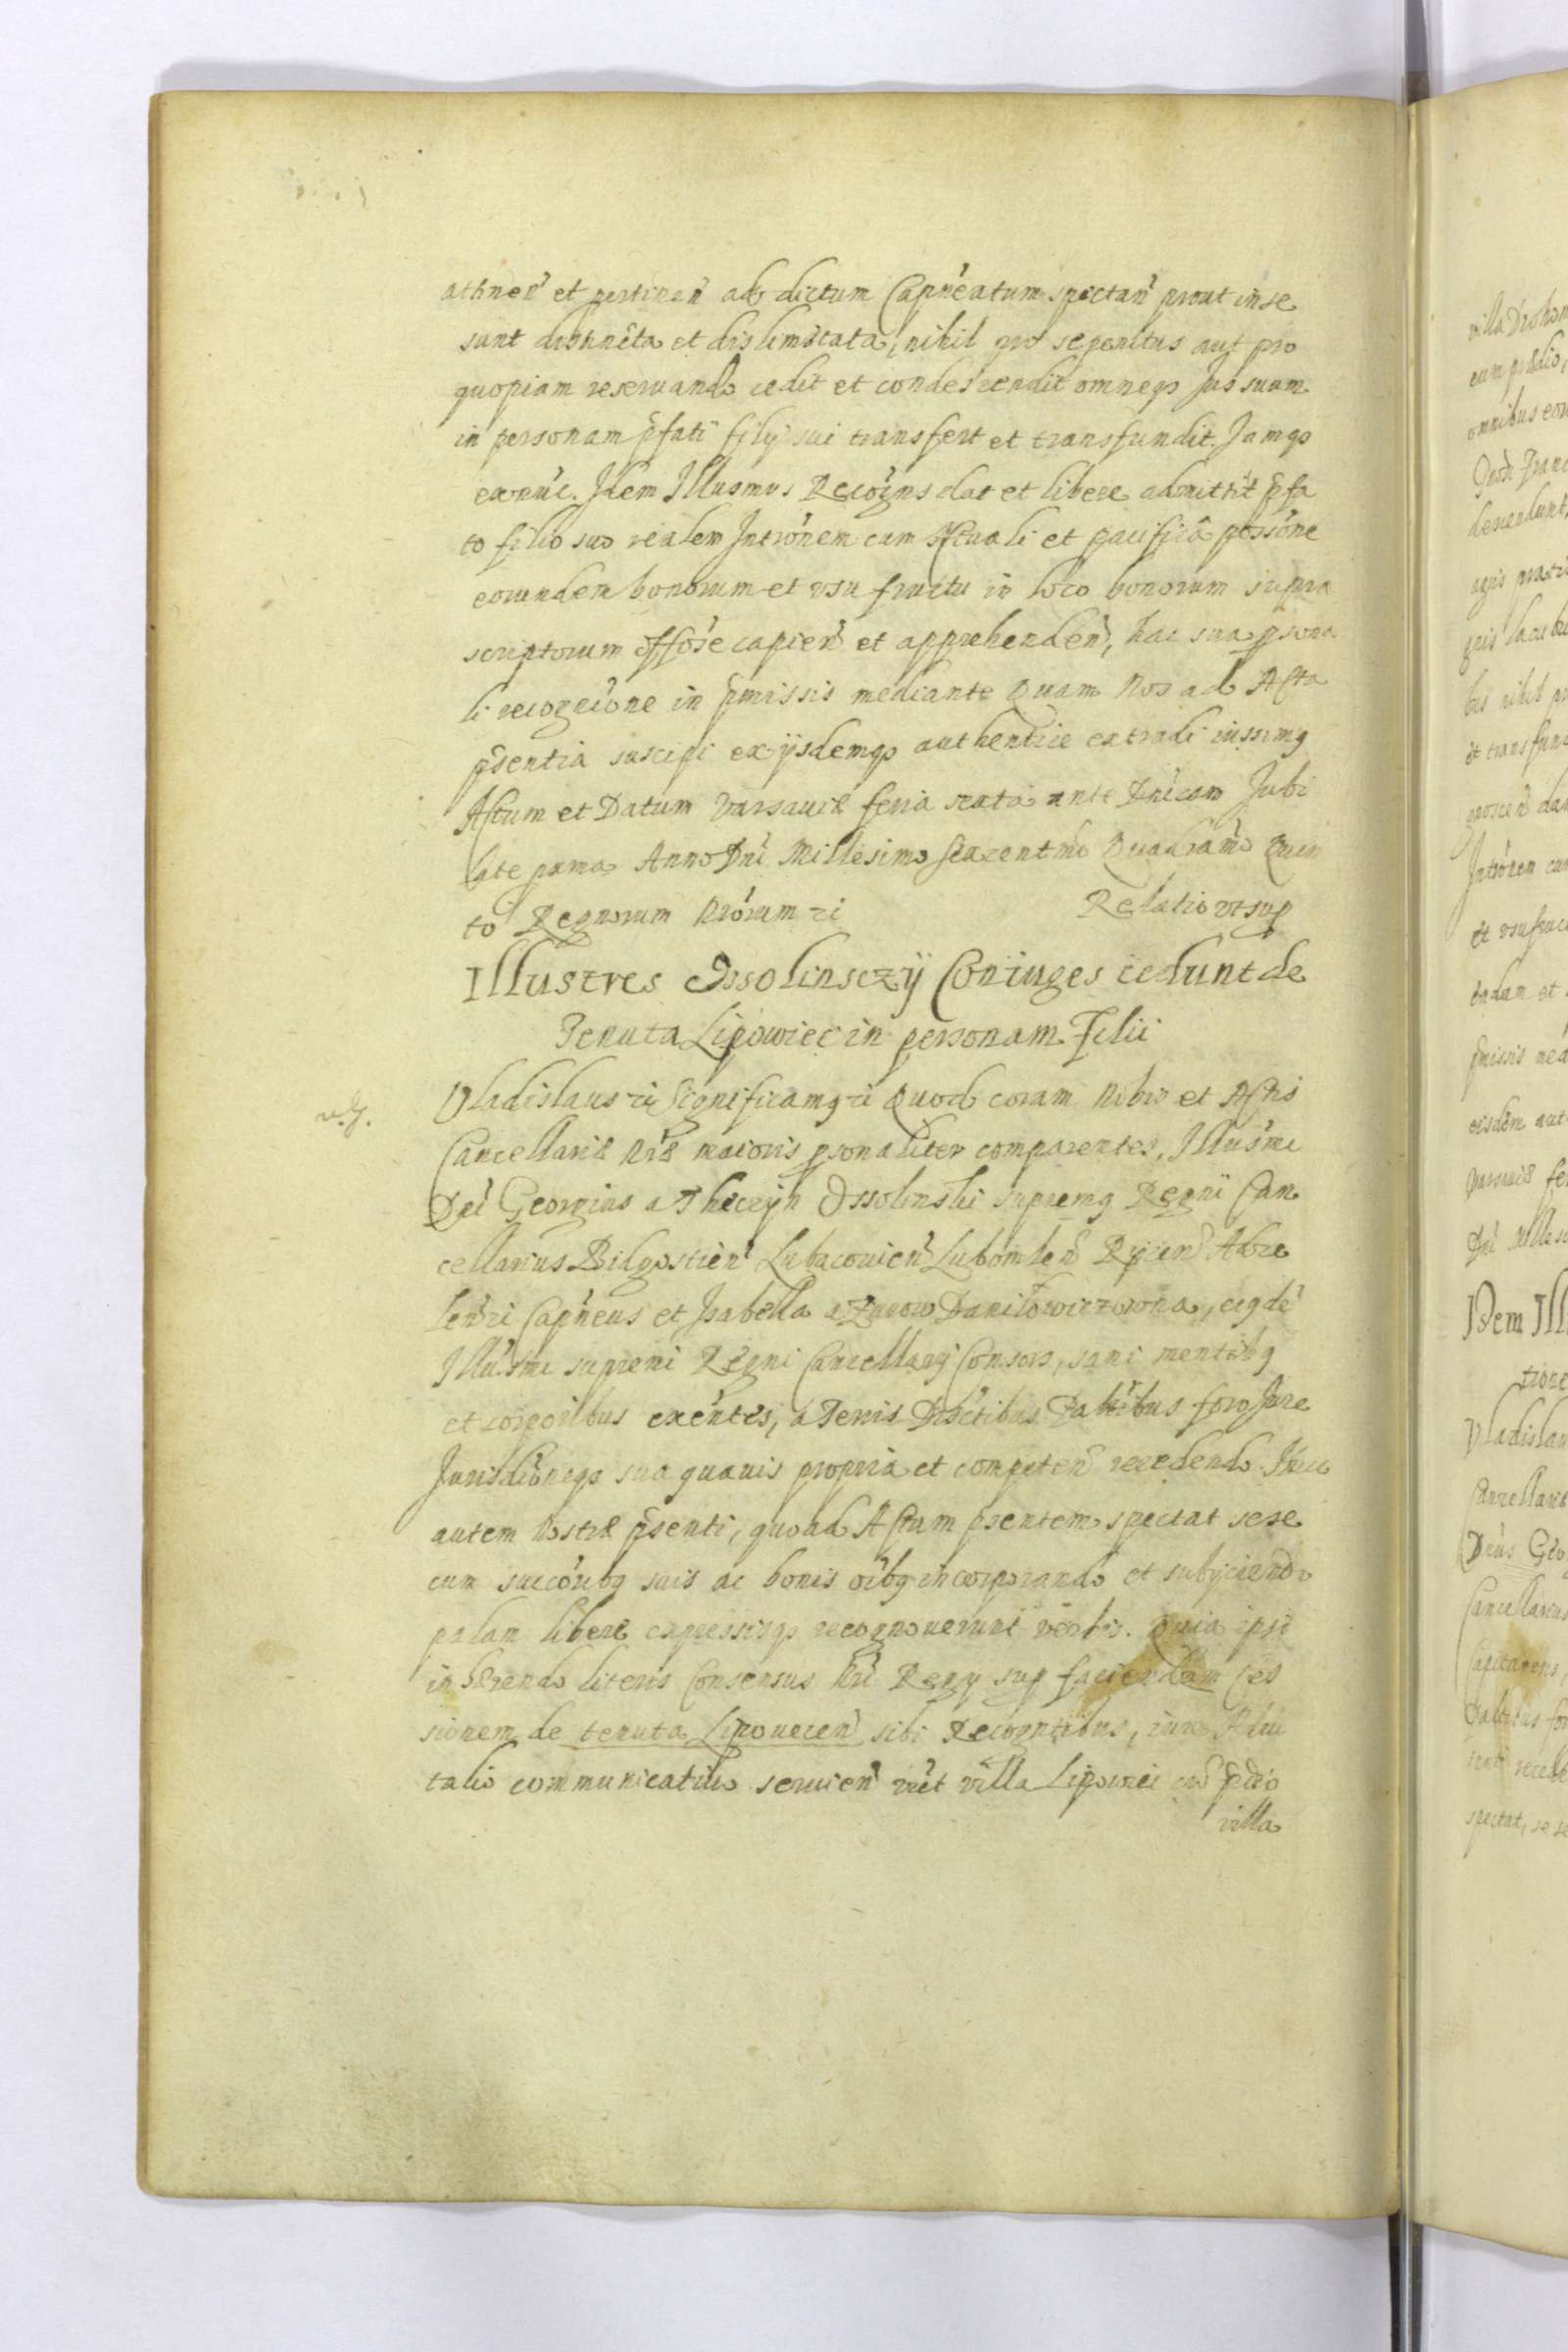 athnen̄ et pertinen̄ ad dictum Capn̄eatum spectan̄ prout in se
sunt distincta et dislimitata, nihil pro se penitus aut pro
quopiam reseruando cedit et condescendit omneqꝫ Jus suum
in personam p̄fati filij sui transfert et transfundit. Jamqꝫ
exnūc. Idem Illusmus Recogn̄s dat et libere admittit p̄fa
to filio suo realem Intron̄em cum Actuali et pacifica possōne
eorundem bonorum et vsu fructu in loco bonorum supra
scriptorum offōse capien̄ et apprehenden̄, hac sua p̱sona
li recognic̄one in p̄missis mediante Quam Nos ad Acta
p̄sentia suscipi ex ijsdemqꝫ authentice extradi iussimꝰ
Actum et Datum Varsauiæ feria sexta ante Dn̄icam Jubi
late prima Anno Dn̄i Millesimo Sexcentmo Quadramo Quin
to Regnorum Nr̄orum ꝛc̄
Relatio vt sup̱
Illustres Ossolinsczÿ Coniuges cedunt de
Tenuta Lipowiec in personam Filii
Vladislaus ꝛc̄ Significamꝰ ꝛc̄ Quod coram Nobis et Actis
Cancellariæ Nr̄æ maioris p̱sonaliter comparentes, Illusm̄i
Dn̄i Georgius a Theczyn Ossolinski supremꝰ Regni Can
cellarius Bidgostien̄ Lubacouien̄ Lubomlen̄ Ryicen̄ Adze
len̄ ꝛc̄ Capn̄eus et Isabella a Zurow Daniłowiczowna, eiꝰdē
Illusm̄i supremi Regni Cancellarij Consors, sani mentibꝰ
et corporibus exn̄tes, a Terris Districtibus Palt̄ibus foro Jure
Jurisdic̄oneqꝫ sua quauis propria et competen̄ recedendo
autem Nostræ p̄senti, quoad Actum p̄sentem spectat sese
cum succōribꝰ suis ac bonis oībꝰ incorporando et subijciendo
palam libere expressisqꝫ recognouerunt verbis. Quia ipsi
inhærendo literis Consensus Nr̄i Regij sup̱ faciendam ces
sionem de tenuta Lipouecen̄ sibi Recogntibus, iure Adui
talio communicatiuo seruien̄ vid̄t villa Lipowiec cū p̄dio
villa